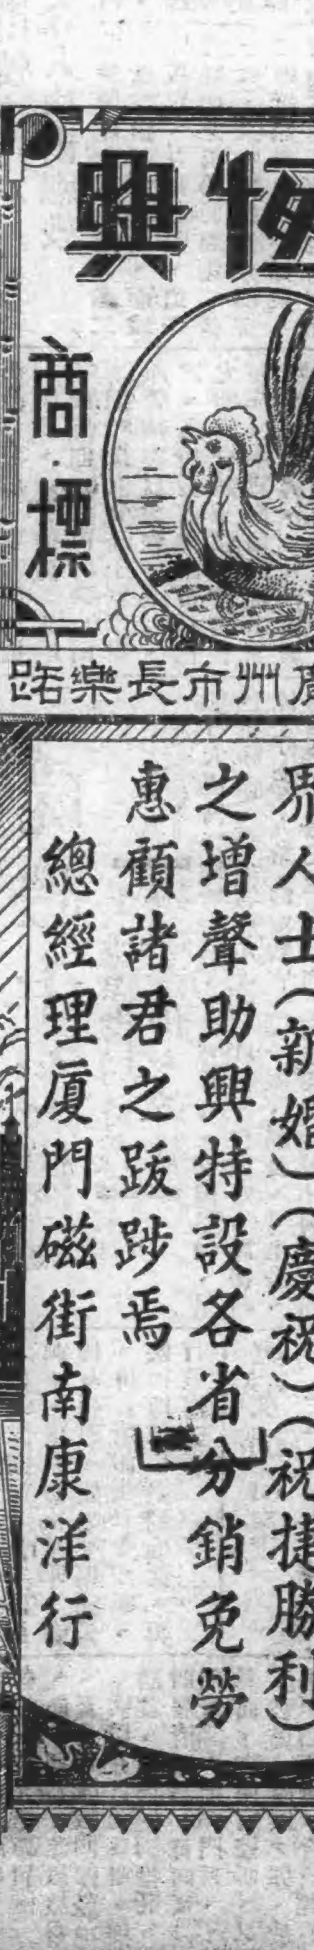 興
商標
廣州市長樂路
界人士(新婚)(慶祝)(祝捷勝利)
之增聲助興特設各省分銷免勞
惠顧諸君之跋涉焉
總經理廈門磁街南康洋行